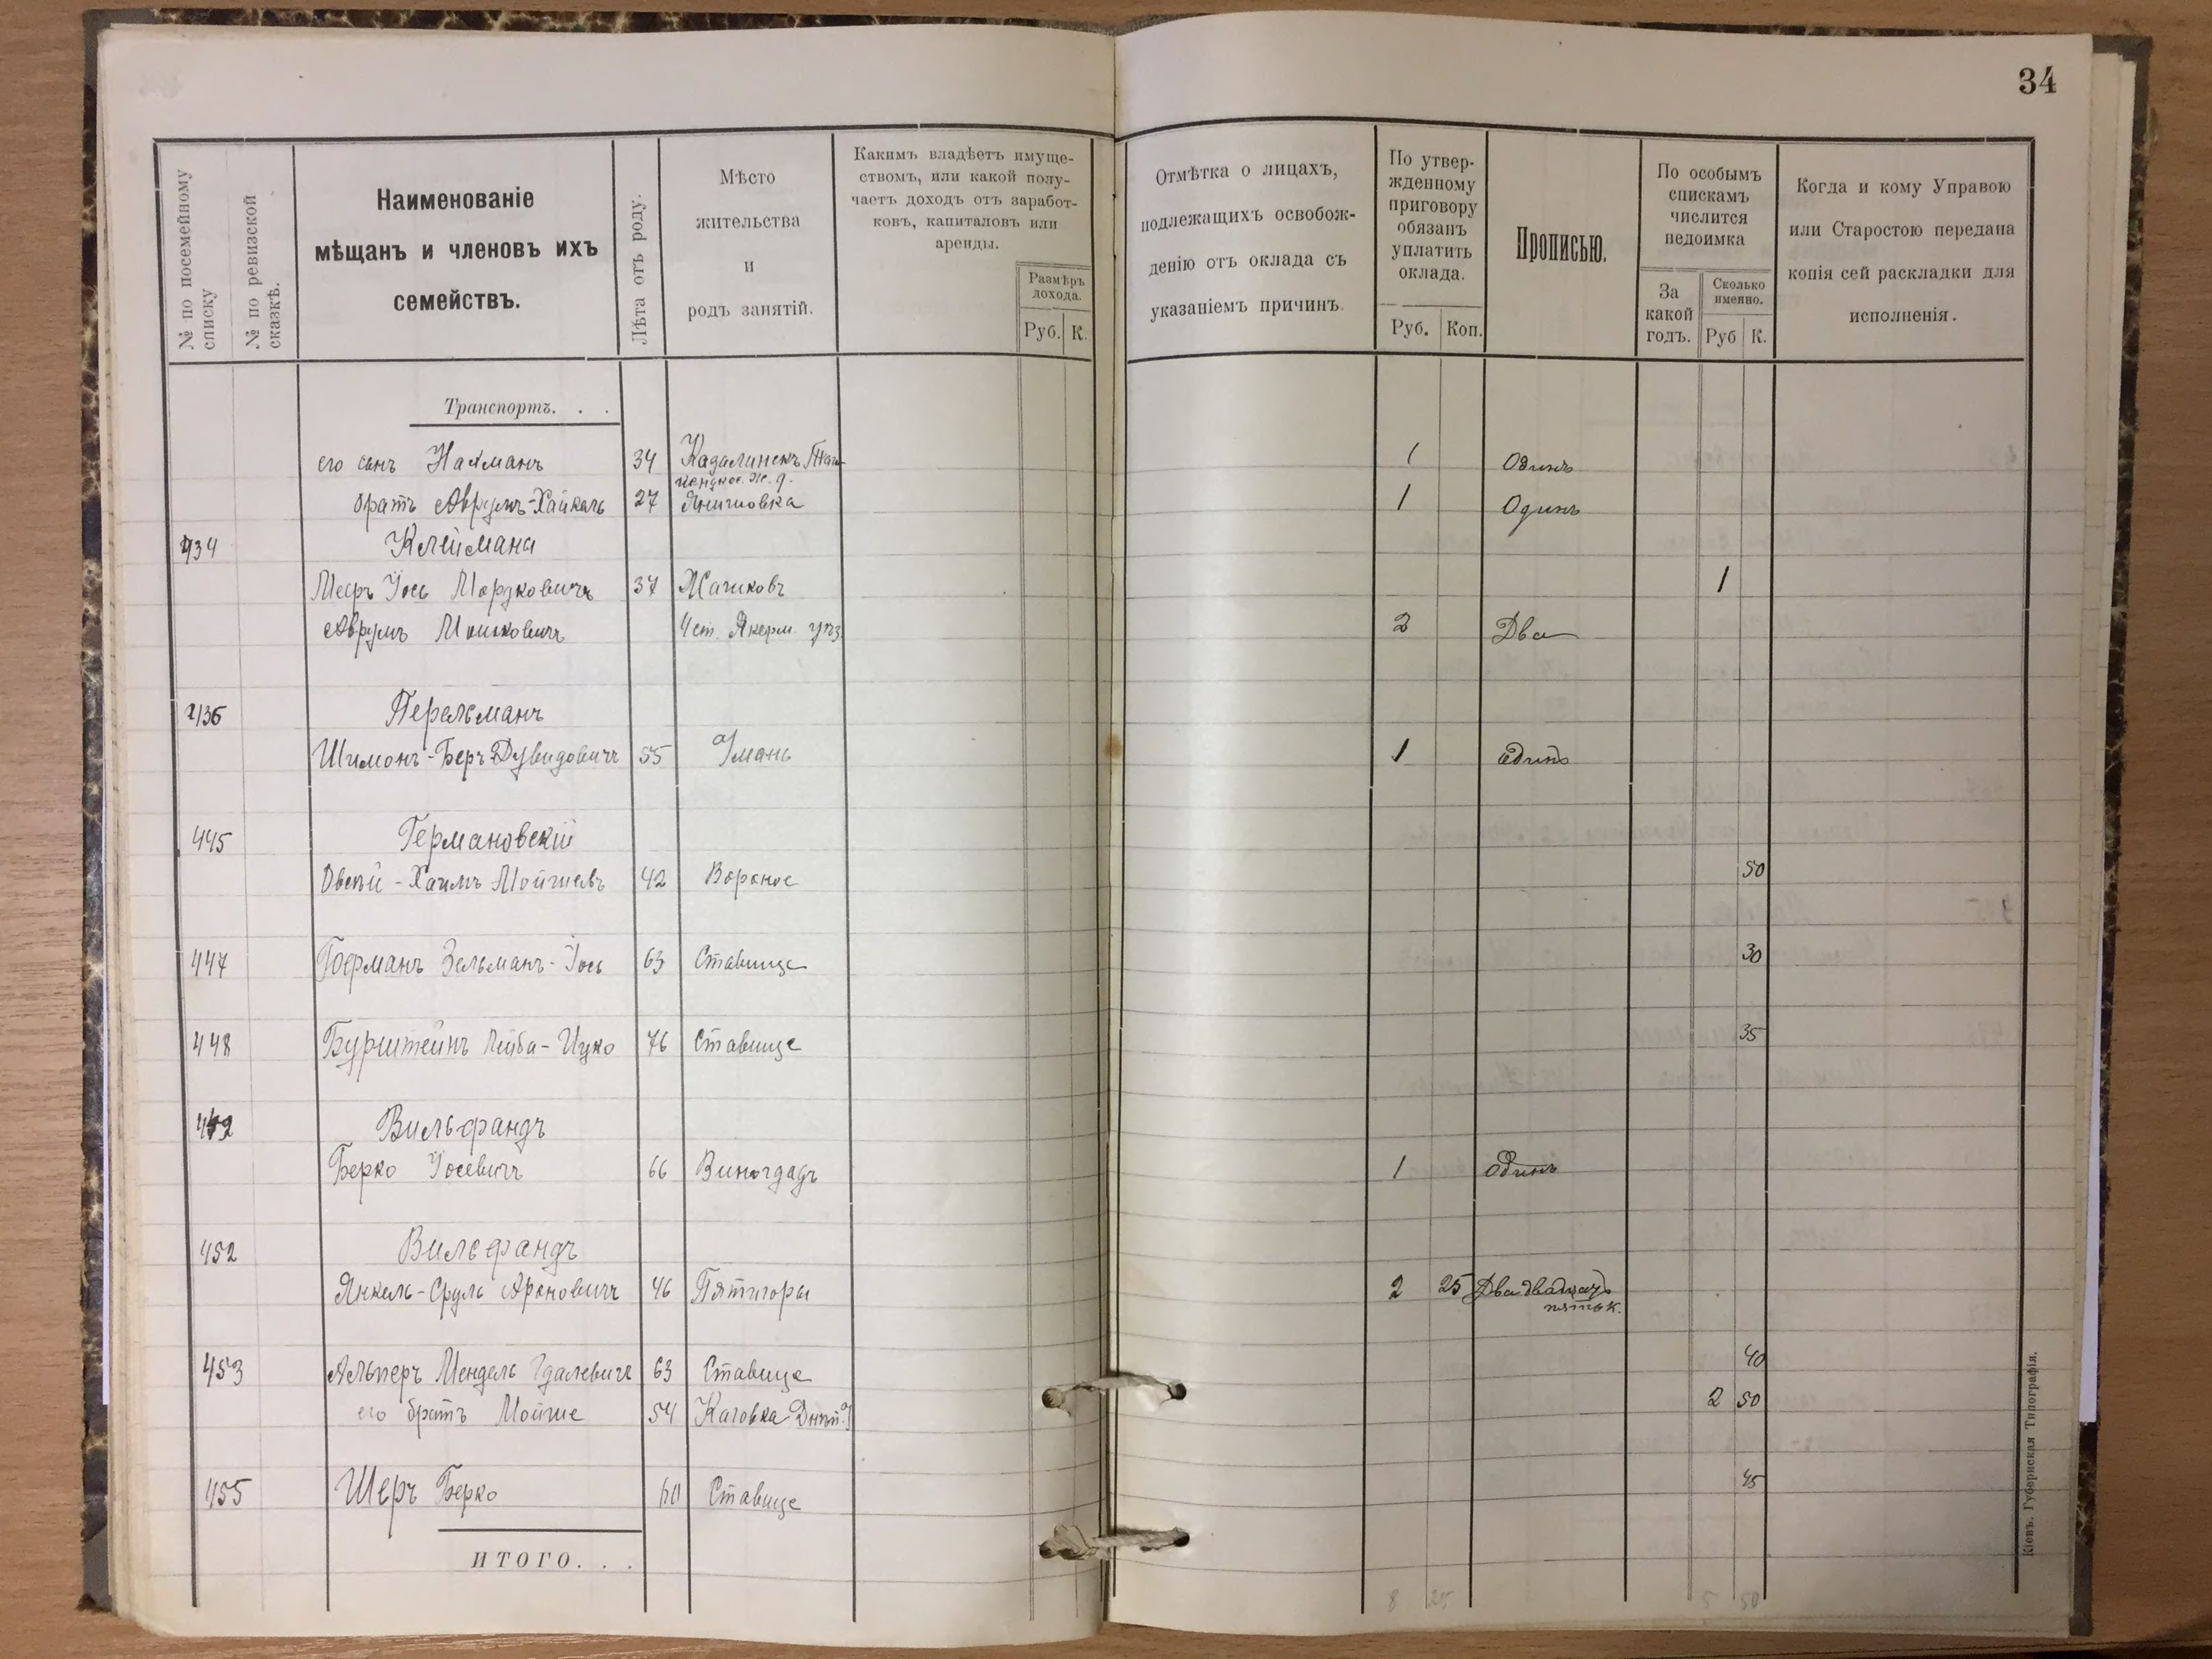 34
№ по посемейному списку
№ по ревизской сказкѣ.
Наименованіе
мѣщанъ и членовъ ихъ
семействъ.
Лѣта отъ роду.
Мѣсто
жительства
и
родъ занятій.
Какимъ владѣетъ имуще-
ствомъ, или какой полу-
чаетъ доходъ отъ заработ-
ковъ, капиталовъ или
аренды.
Размѣръ
дохода.
Руб. К.
Отмѣтка о лицахъ,
подлежащихъ освобож-
денію отъ оклада съ
указаніемъ причинъ.
По утвер-
жденному
приговору
обязанъ
уплатить
оклада.
Руб. Коп.
Прописью.
По особымъ
спискамъ
числится
недоимка
За
какой
годъ.
Сколько
именно.
Руб К.
Когда и кому Управою
или Старостою передана
копія сей раскладки для
исполненія.
Транспортъ. . .
его сынъ Нахманъ 34 1 Одинъ
братъ Аврумъ-Хаикель 27 1 Одинъ
434 Клейманъ
Меръ Іось Мордковичъ 37 Жашковъ 1
Аврумъ Мошковичъ 2 Два
436 Перельманъ
Шимонъ-Беръ Дувидовичъ 55 Умань 1 один
445 Германовскій
Овсѣй-Хаимъ Мойшевъ 42 Вороное 50
447 Гофманъ Зельманъ-Іось 63 Ставище 30
448 Бурштейнъ Лейба-Ицко 76 Ставище 35
Вильфандъ
Берко Іосевичъ 66 Виноградъ 1 Одинъ
452 Вильфандъ
Янкель-Сруль Ароновичъ 46 Пятигоры 2 25 Два двадцать
пять к.
453 Альперъ Мендель Гдалевичъ 63 Ставище 40
его братъ Мойше 54 Каховка Днѣп. У 2 50
455 Шеръ Берко Ставище 45
ИТОГО. . .
8 25 5 50
Кіевъ. Губернская Типографія.